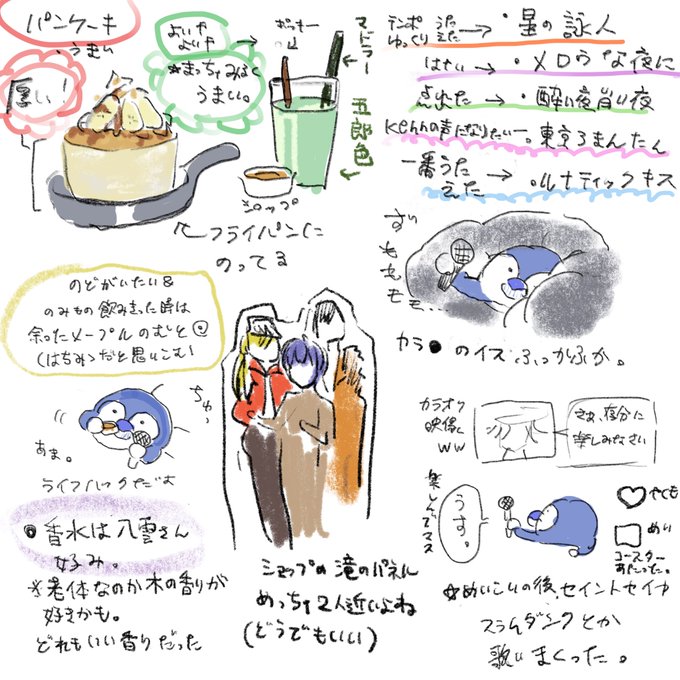 パンケーキ
うまい
厚い!
よいやよいや
☆まっちゃみるく
うまい。
マドラー
五郎色
シロップ
フライパンに
のってる
テンポゆっくり
うたえた
→・星の詠人
はやい→・メロウな夜に
→・酔い夜宵い夜
kennの声になりたいー。東京ろまんたん
一番うたえた→・ルナティックキス
ずももももも...
カラ●のイスふっかふか。
のどがいたい&
のみもの飲みきった時は
余ったメープルのむと◎
(はちみつだと思いこむ)
ちゅっ
あま。
ライフハックだよ
●香水は八雲さん
好み。
※老体なのか木の香りが
好きかも。
どれもいい香りだった
ショップの滝のパネル
めっちゃ2人近いよね
(どうでもいい)
カラオケ
映像ww
さぁ、存分に
楽しみなさい
楽しんでマス
うす。
やくも
めい
コースター
あたった。
☆めいこいの後、セイントセイヤ
スラムダンクとか
歌いまくった。